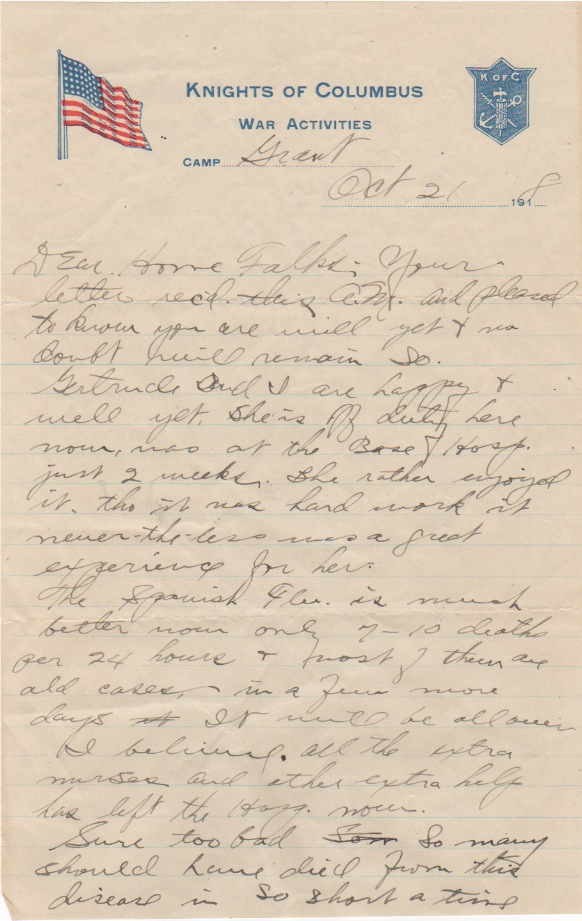 KNIGHTS OF COLUMBUS
K OF C
WAR ACTIVITIES
CAMP Grant
Oct 21 1918
Dear Home Folks: Your
letter rec'd. this A.M. and pleased
to know you are well yet & no
doubt will remain so.
Gertrude and I are happy &
well yet. She is off duty here
now, was at the Base Hosp.
just 2 weeks. She rather enjoyed
it. tho it was hard work it
never-the-less was a great
experience for her.
The Spanish Flu. is much
better now only 7-10 deaths
per 24 hours & most of them are
old cases, in a few more
days it It will be all over
I believe. all the extra
nurses and other extra help
has left the Hosp. now.
Sure too bad Som so many
should have died from this
disease in so short a time